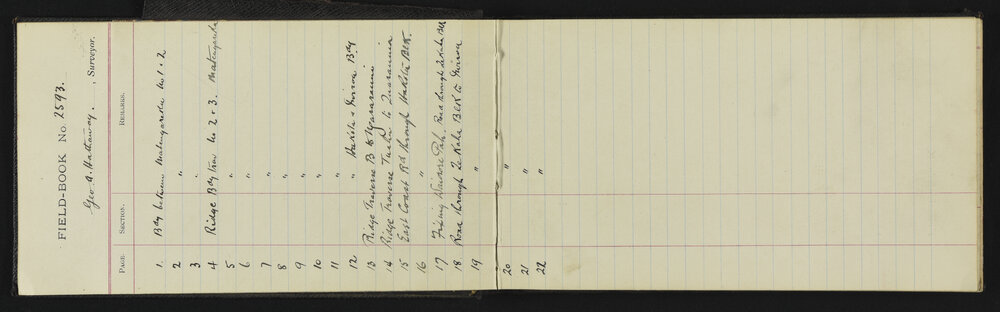 FIELD-BOOK No. 2593.
Geo. A. Hattaway. , Surveyor.
PAGE. SECTION. REMARKS.
1. Bdy between Matangareka No 1 & 2
2 "
3 "
4 Ridge Bdy trav No 2 & 3. Matangareka
5 "
6 "
7 "
8 "
9 "
10 "
11 "
12 " & Bdy
13 Ridge Traverse B to
14 Ridge Traverse to
15 East Coast Rd through Blk.
16 "
17 Fixing Pah. Road through Te Kaha Blk
18 Road through Te Kaha Blk to
19 "
20 "
21 "
22 "